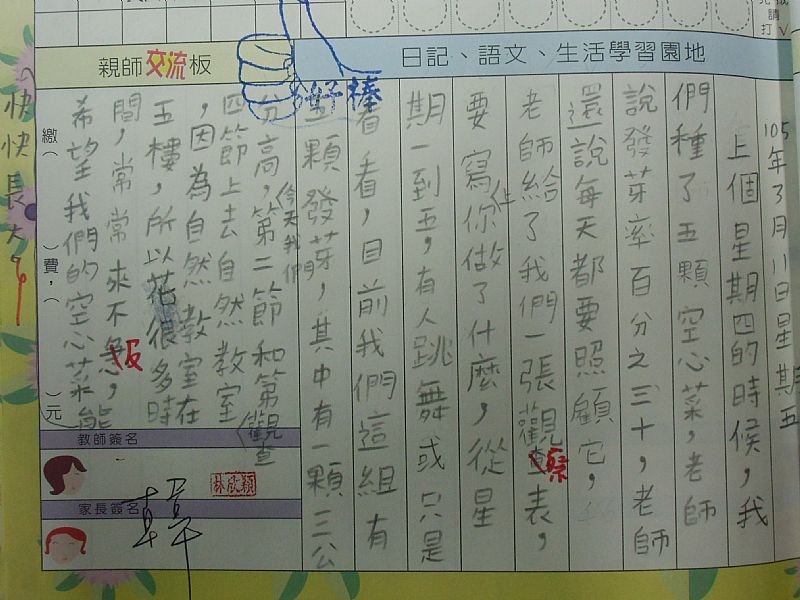 日記、語文、生活學習園地
親師交流板
105年3月11日星期五
上個星期四的時候，我
們種了五顆空心菜，老師
說發芽率百分之三十，老師
還說每天都要照顧它，
老師給了我們一張觀查表，
察
要寫你做了什麼，從星
上
期一到五，有人跳舞或只是
看看，目前我們這組有
五顆發芽，其中有一顆三公
分高，第二節和第
今天我們
觀查
四節上去自然教室
，因為自然教室在
五樓，所以花很多時
間，常常來不急，
及
希望我們的空心菜能
快快長大。
好棒
繳（ ）費，（ ）元
教師簽名
林欣穎
家長簽名